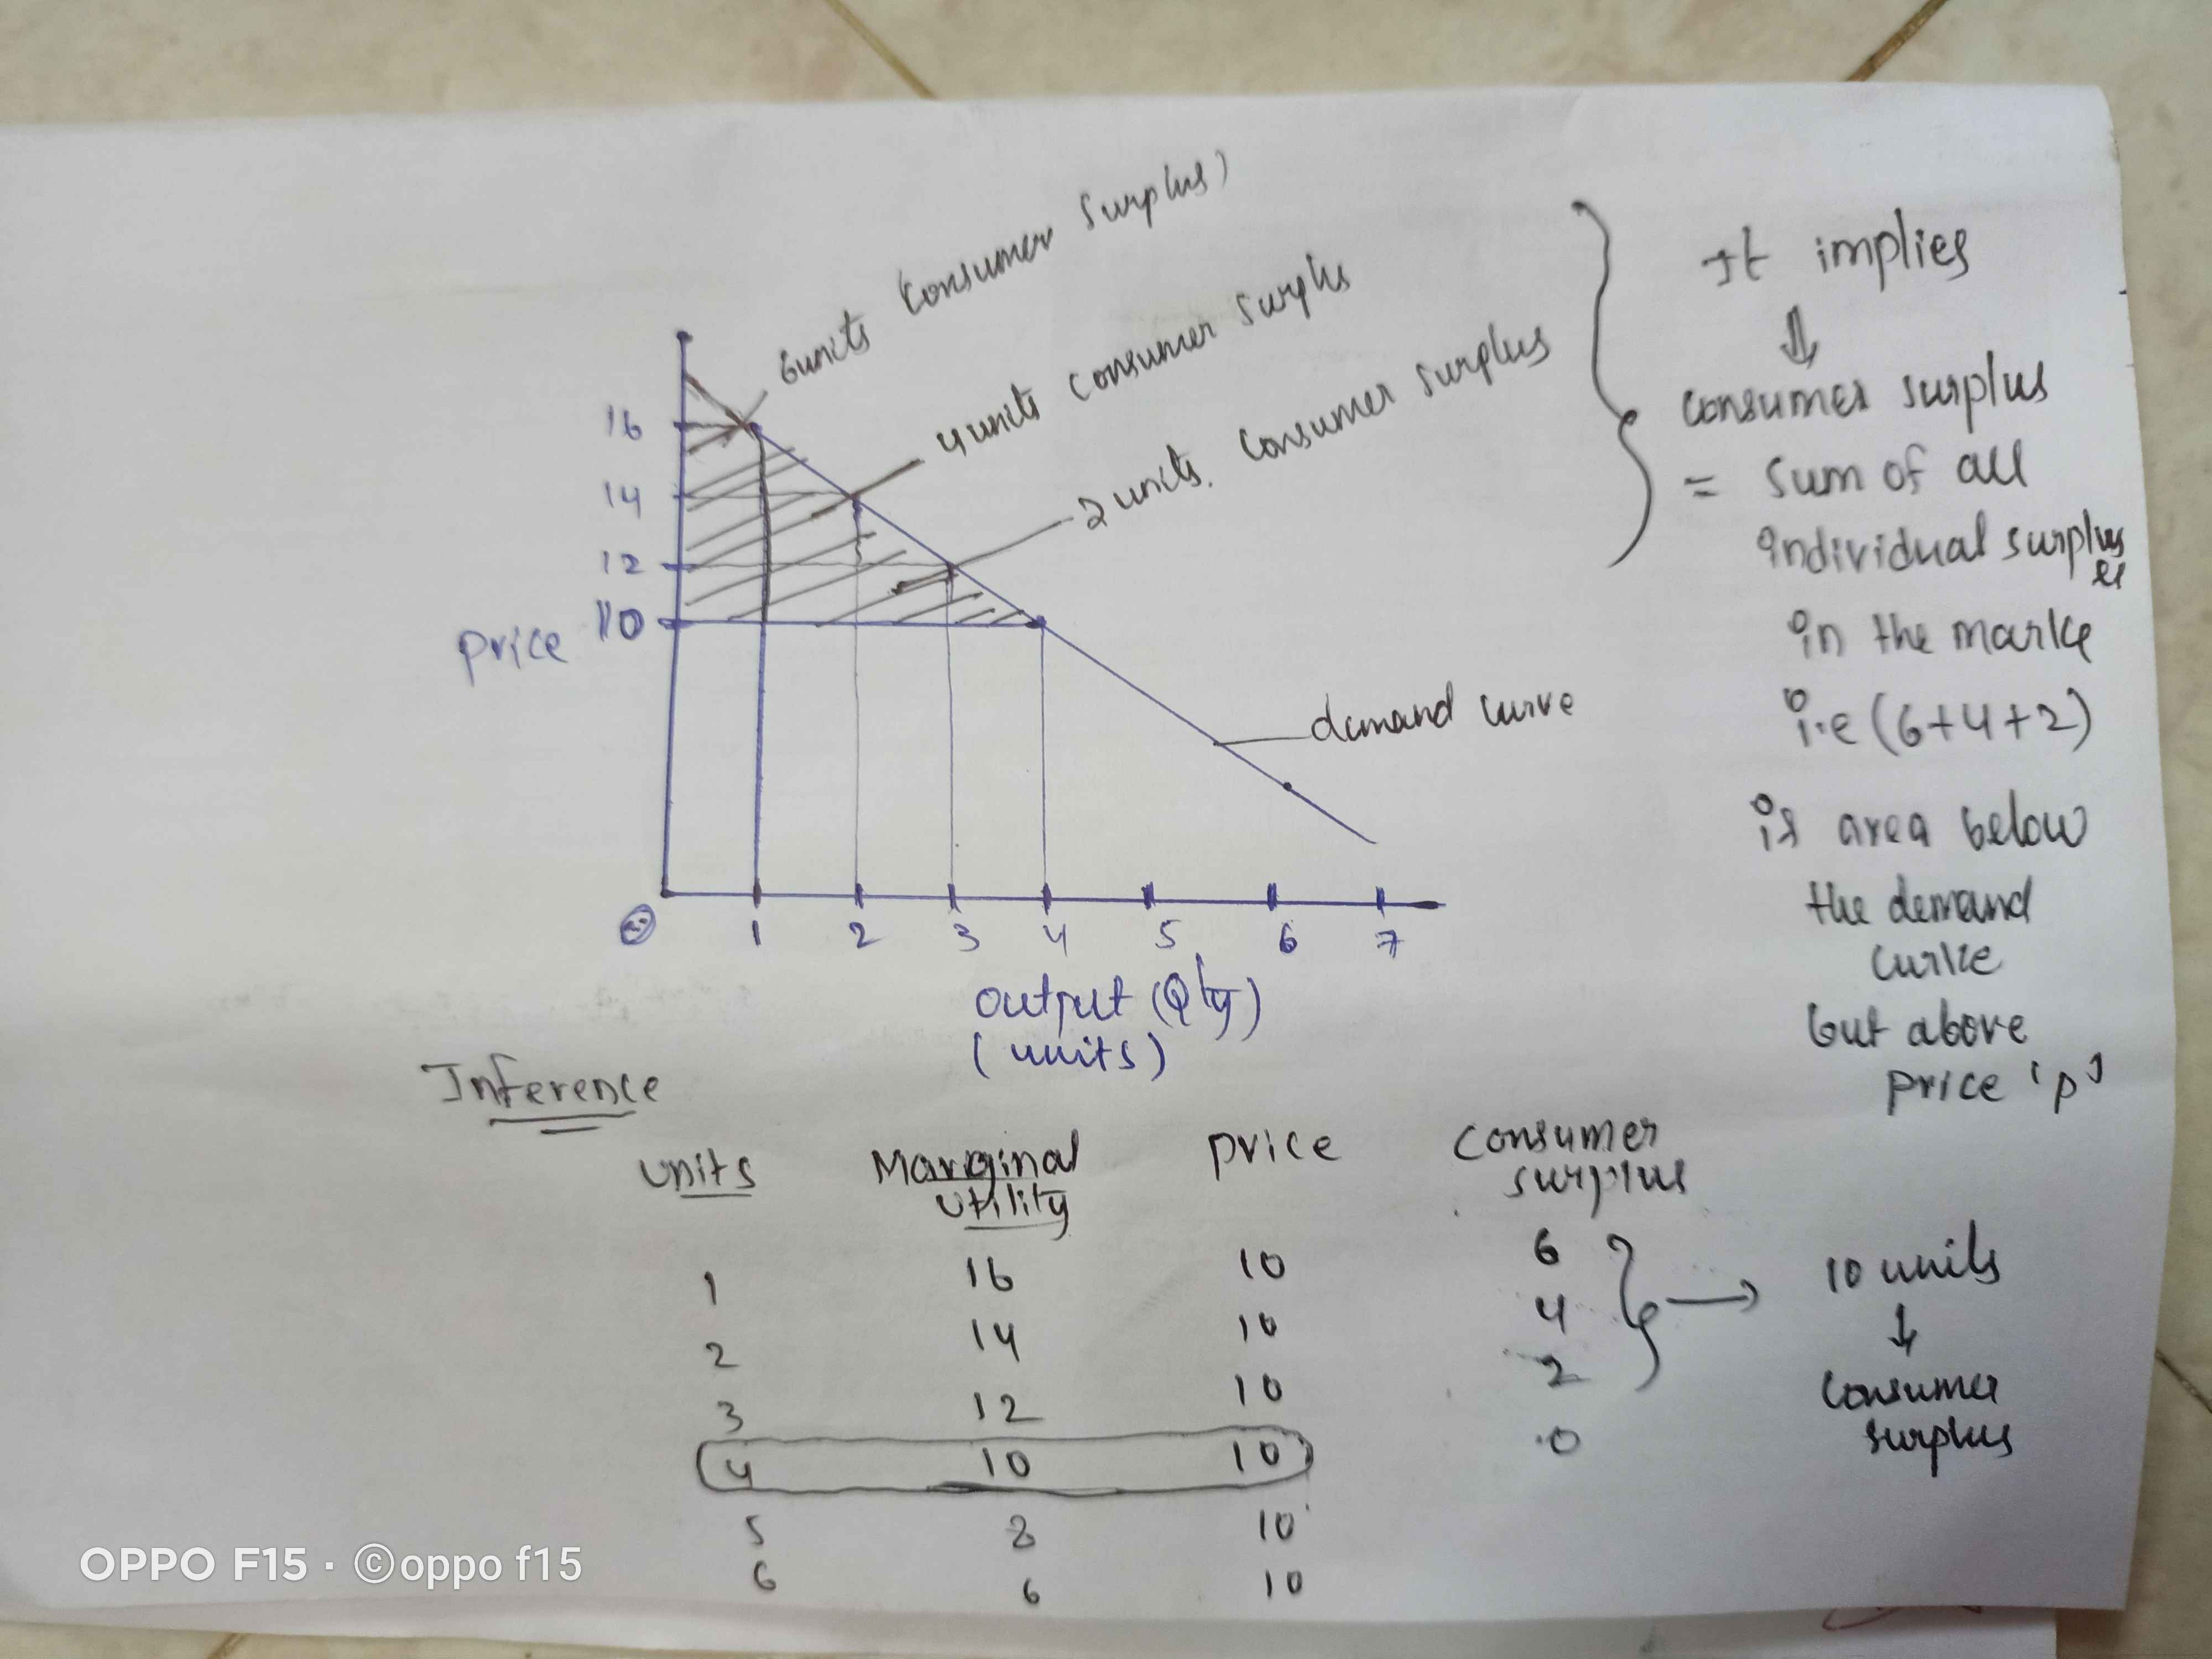 6units (consumer surplus)
4units consumer surplus
2 units. consumer surplus
16
14
12
10
price
demand curve
1 2 3 4 5 6 7
output (Qty)
(units)
It implies
⇓
consumer surplus
= sum of all
individual surplus
es
in the marke
i.e (6+4+2)
is area below
the demand
curve
but above
price 'p'
Inference
units Marginal utility price consumer surplus
1 16 10 6
2 14 10 4
3 12 10 2
4 10 10 0
5 8 10
6 6 10
→ 10 units
↓
consumer
surplus
OPPO F15 · ©oppo f15